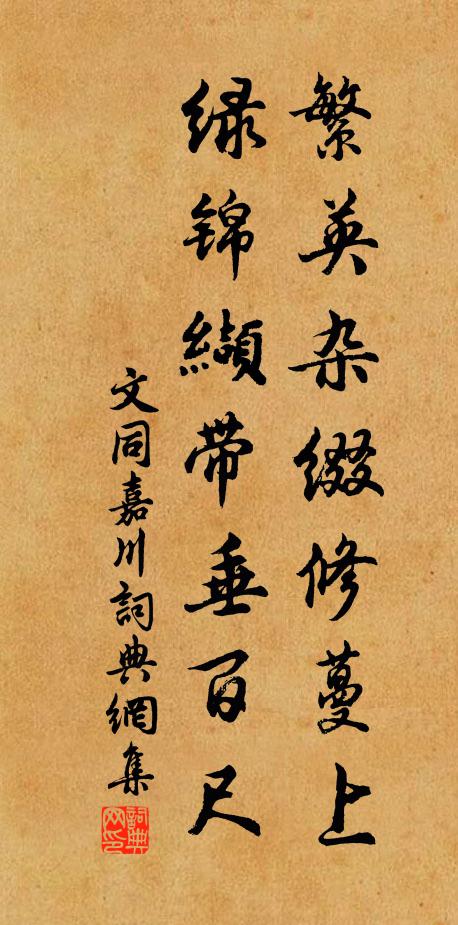 繁英杂缀修蔓上
绿锦缬带垂百尺
文同嘉川詞典網集
詞典网印